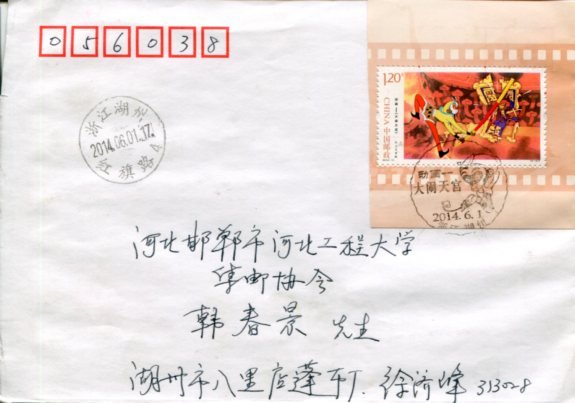 056038
1.20
CHINA
中国邮政
浙江湖州
2014.06.01.17
红旗路4
动画—
大闹天宫
2014.6.1
浙江湖州
河北邯郸市河北工程大学
集邮协会
韩春景 先生
湖州市八里店蓬车厂 徐济峰 313028